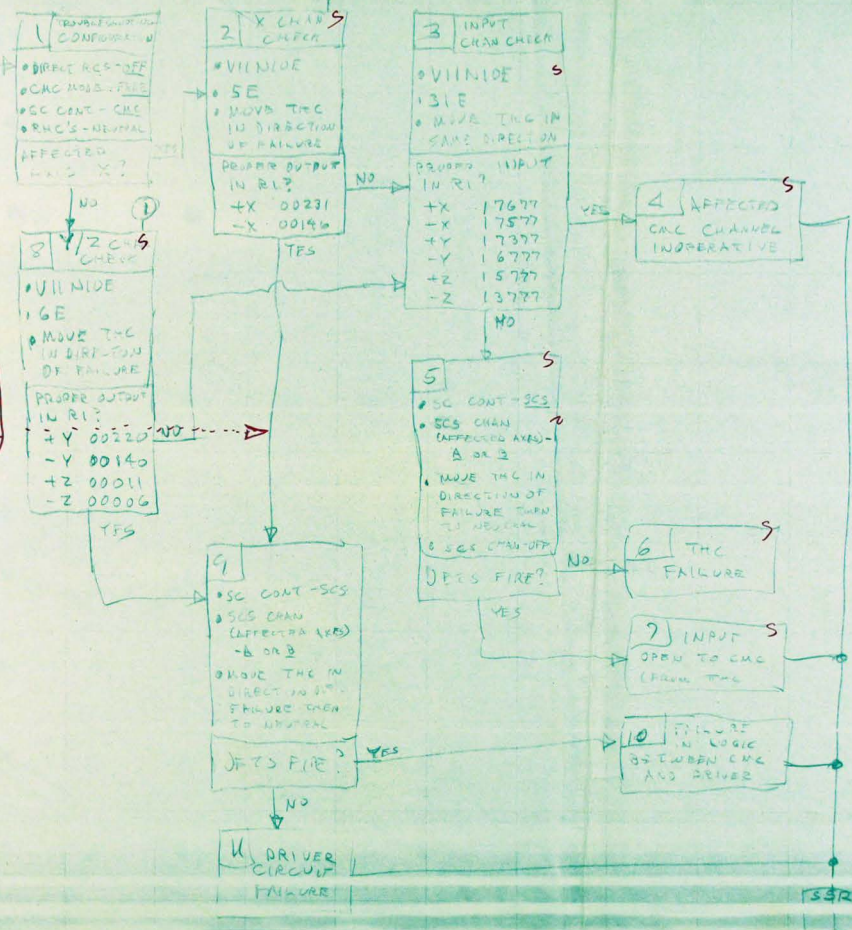 1 TROUBLESHOOTING
CONFIGURATION
• DIRECT RCS - OFF
• CMC MODE - FREE
• SC CONT - CMC
• RHC'S - NEUTRAL
AFFECTED
AXIS X?
YES
NO
1
2 X CHAN S
CHECK
• V11 N10E
• 5E
• MOVE THC
IN DIRECTION
OF FAILURE
PROPER OUTPUT
IN R1?
+X 00231
-X 00146
NO
YES
3 INPUT
CHAN CHECK
• V11 N10E S
• 31E
• MOVE THC IN
SAME DIRECTION
PROPER INPUT
IN R1?
+X 17677
-X 17577
+Y 17377
-Y 16777
+Z 15777
-Z 13777
YES
NO
4 AFFECTED S
CMC CHANNEL
INOPERATIVE
8 Y/Z CHAN S
CHECK
• V11 N10E
• 6E
• MOVE THC
IN DIRECTION
OF FAILURE
PROPER OUTPUT
IN R1?
+Y 00220
-Y 00140
+Z 00011
-Z 00006
NO
YES
5 S
• SC CONT - SCS
• SCS CHAN
(AFFECTED AXES) -
A OR B
• MOVE THC IN
DIRECTION OF
FAILURE THEN
TO NEUTRAL
• SCS CHAN - OFF
JETS FIRE?
NO
YES
6 THC S
FAILURE
7 INPUT S
OPEN TO CMC
(FROM THC
9
• SC CONT - SCS
• SCS CHAN
(AFFECTED AXES)
- A OR B
• MOVE THC IN
DIRECTION OF
FAILURE THEN
TO NEUTRAL
JETS FIRE?
YES
NO
10 FAILURE
IN LOGIC
BETWEEN CMC
AND DRIVER
11 DRIVER
CIRCUIT
FAILURE
SSR